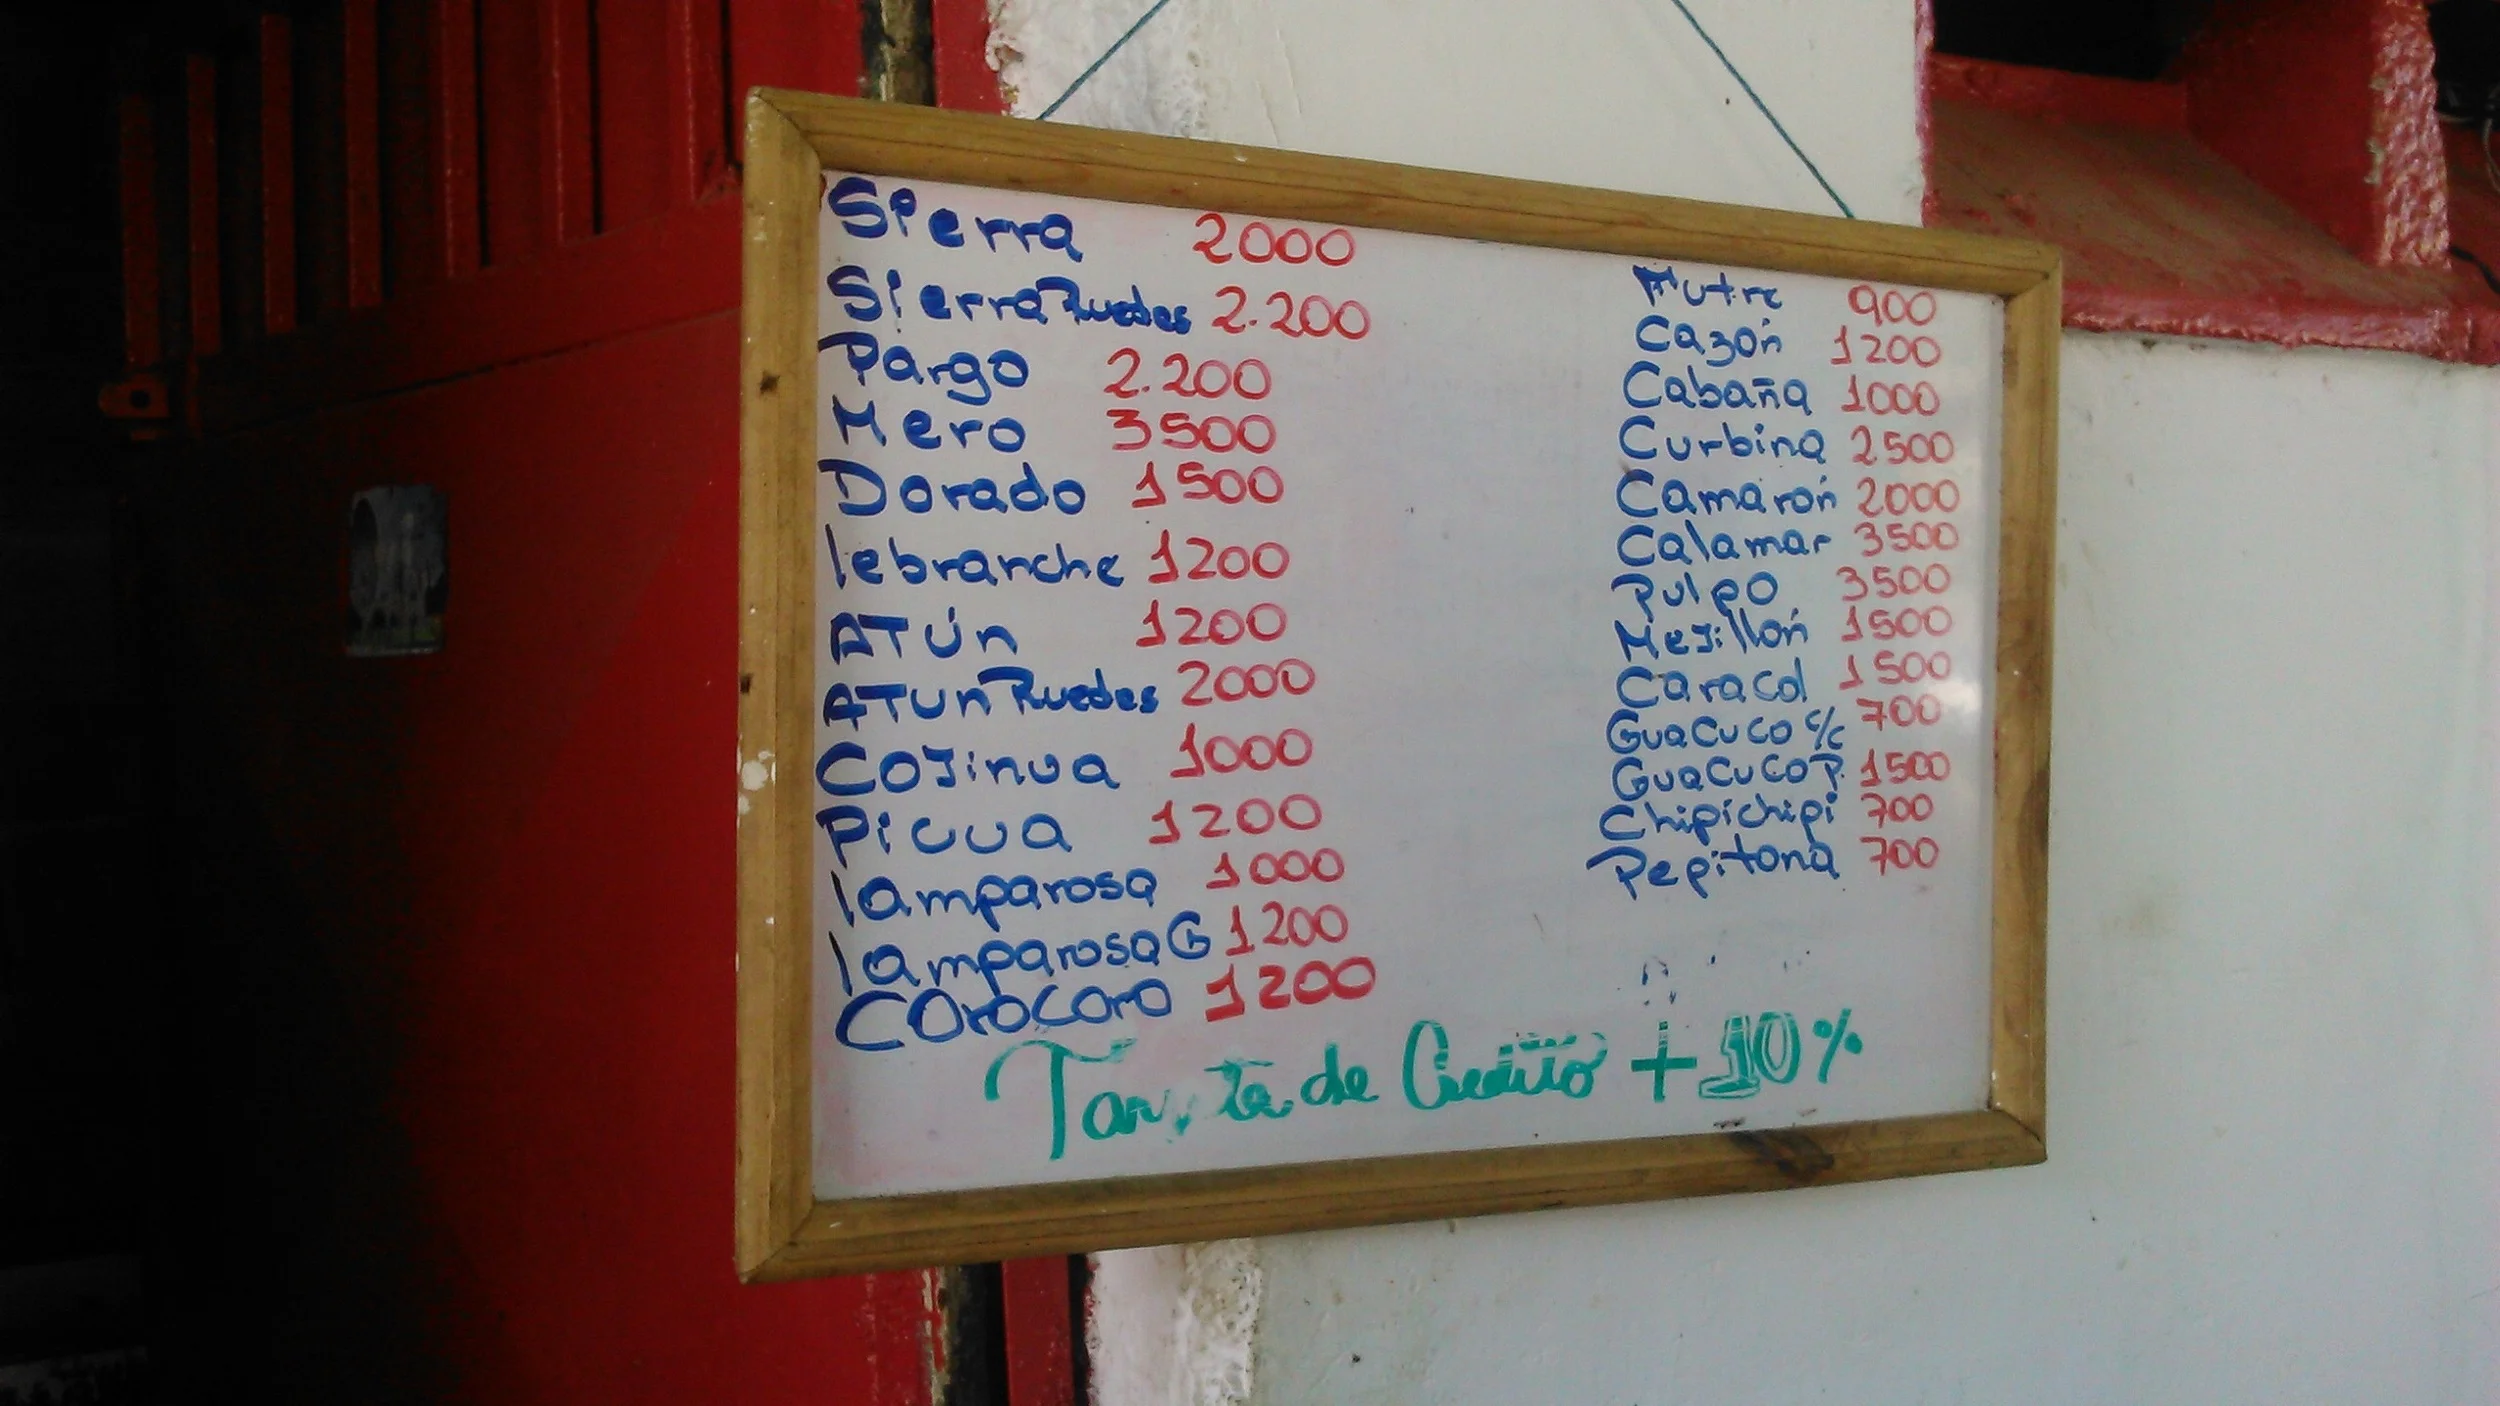 Sierra 2000
Sierra Ruedas 2.200
Pargo 2.200
Mero 3500
Dorado 1500
lebranche 1200
ATÚn 1200
ATUn Ruedas 2000
CoJinua 1000
Picua 1200
lamparosa 1000
lamparosa G 1200
COroCoro 1200
Putre 900
Cazón 1200
Cabaña 1000
Curbina 2500
Camarón 2000
Calamar 3500
Pulpo 3500
MeJillón 1500
Caracol 1500
GuaCuCo c/c 700
GuaCuCo P. 1500
Chipichipi 700
Pepitona 700
Tarjeta de Credito +10%